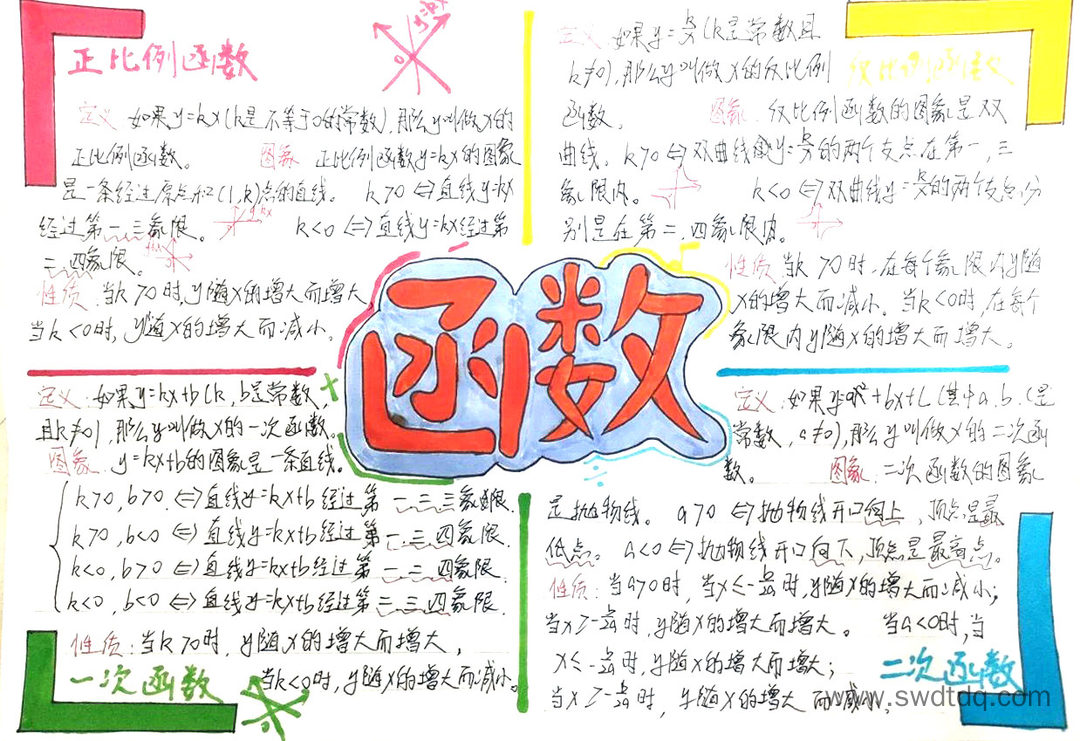 正比例函数
定义 如果y=kx(k是不等于0的常数),那么y叫做x的
正比例函数。 图象 正比例函数y=kx的图象
是一条经过原点和(1,k)点的直线。 k>0⇔直线y=kx
经过第一、三象限。 k<0⇔直线y=kx经过第
二、四象限。
性质 当k>0时,y随x的增大而增大
当k<0时,y随x的增大而减小.
定义 如果y=k/x(k是常数且
k≠0),那么y叫做x的反比例
反比例函数
函数。 图象 反比例函数的图象是双
曲线. k>0⇔双曲线y=k/x的两个支点在第一,三
象限内。 k<0⇔双曲线y=k/x的两个支点分
别是在第二.四象限内。
性质 当k>0时.在每个象限内y随
x的增大而减小.当k<0时,在每个
象限内y随x的增大而增大。
函数
定义.如果y=kx+b(k,b是常数,
且k≠0),那么y叫做x的一次函数。
图象.y=kx+b的图象是一条直线。
k>0,b>0⇔直线y=kx+b经过第一.二.三象限.
k>0,b<0⇔直线y=kx+b经过第一.三.四象限.
k<0,b>0⇔直线y=kx+b经过第一.二.四象限.
k<0,b<0⇔直线y=kx+b经过第二.三.四象限.
性质:当k>0时,y随x的增大而增大,
一次函数 当k<0时,y随x的增大而减小。
定义.如果y=ax²+bx+c(其中a.b.c是
常数,a≠0),那么y叫做x的二次函
数。 图象.二次函数的图象
是抛物线。 a>0⇔抛物线开口向上,顶点是最
低点。 a<0⇔抛物线开口向下,顶点是最高点。
性质:当a>0时,当x≤-b/2a时,y随x的增大而减小;
当x≥-b/2a时,y随x的增大而增大。 当a<0时,当
x≤-b/2a时,y随x的增大而增大;
二次函数
当x≥-b/2a时,y随x的增大而减小,
www.swdtdq.com